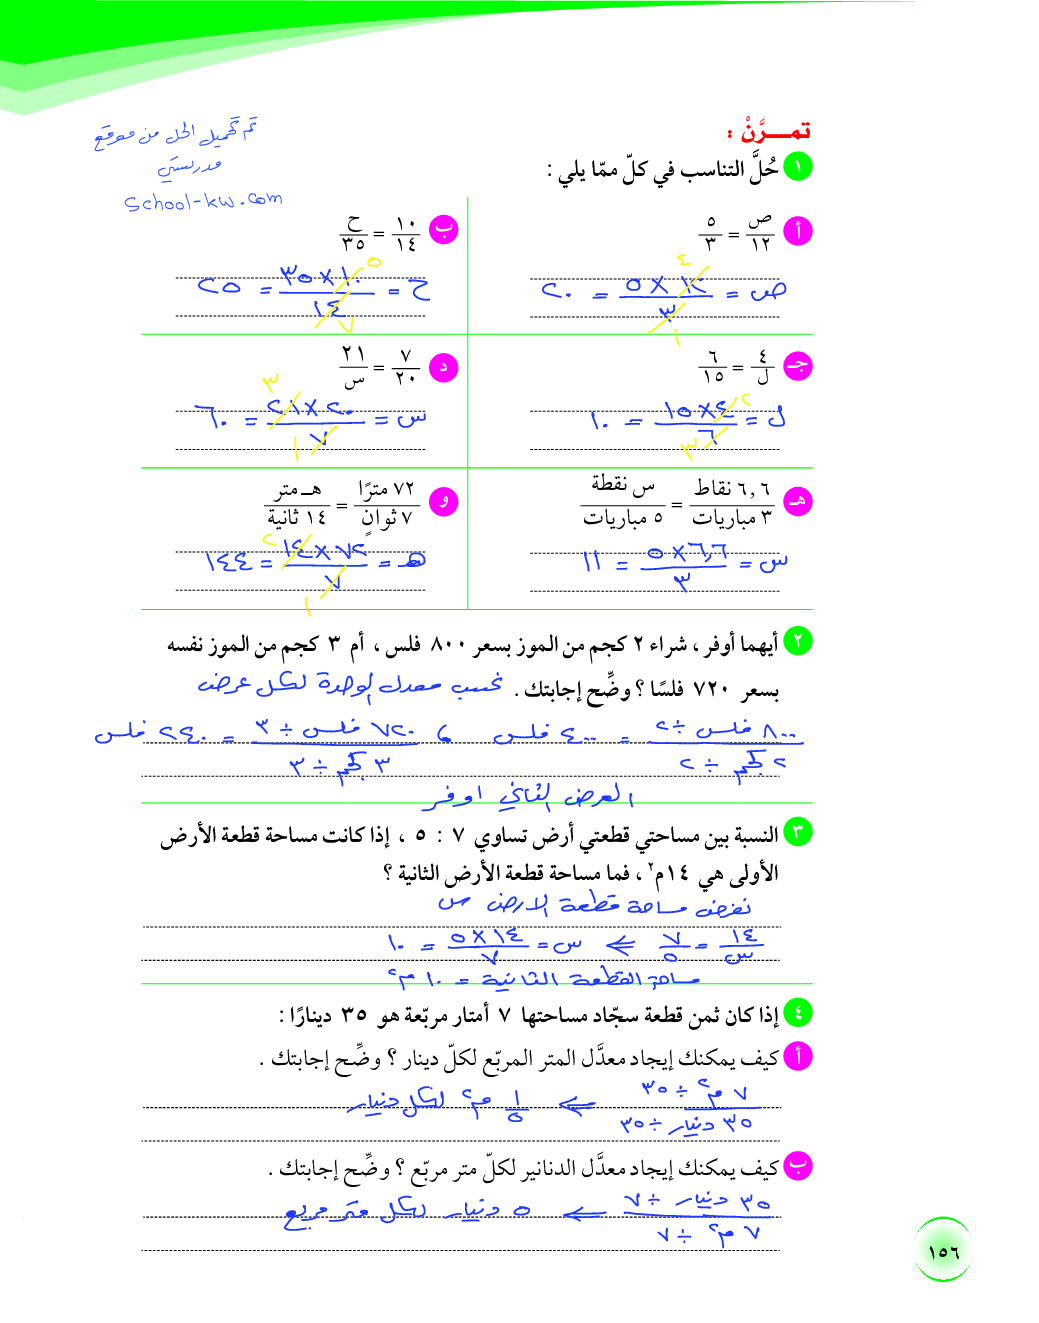 تمـــرَّنْ :
تم تكميل الحل من موقع
مدرستي
School-kw.com
١ حُلَّ التناسب في كلّ ممّا يلي :
أ ص/١٢ = ٥/٣
ص = ١٢ × ٥ / ٣ = ٢٠
٤
١
ب ١٠/١٤ = ح/٣٥
ح = ١٠ × ٣٥ / ١٤ = ٢٥
٥
٧
جـ ٤/ل = ٦/١٥
ل = ٤ × ١٥ / ٦ = ١٠
٢
٣
د ٧/٢٠ = ٢١/س
س = ٢٠ × ٢١ / ٧ = ٦٠
٣
١
هـ ٦,٦ نقاط / ٣ مباريات = س نقطة / ٥ مباريات
س = ٦,٦ × ٥ / ٣ = ١١
و ٧٢ مترًا / ٧ ثوانٍ = هـ متر / ١٤ ثانية
هـ = ٧٢ × ١٤ / ٧ = ١٤٤
٢
١
٢ أيهما أوفر ، شراء ٢ كجم من الموز بسعر ٨٠٠ فلس ، أم ٣ كجم من الموز نفسه
بسعر ٧٢٠ فلسًا ؟ وضِّح إجابتك .
نحسب معدل الوحدة لكل عرض
٨٠٠ فلس ÷ ٢ / ٢ كجم ÷ ٢ = ٤٠٠ فلس ، ٧٢٠ فلس ÷ ٣ / ٣ كجم ÷ ٣ = ٢٤٠ فلس
العرض الثاني اوفر
٣ النسبة بين مساحتي قطعتي أرض تساوي ٧ : ٥ ، إذا كانت مساحة قطعة الأرض
الأولى هي ١٤م٢ ، فما مساحة قطعة الأرض الثانية ؟
نفرض مساحة قطعة الارض س
١٤/س = ٧/٥ ⇐ س = ١٤ × ٥ / ٧ = ١٠
مساحة القطعة الثانية = ١٠ م٢
٤ إذا كان ثمن قطعة سجّاد مساحتها ٧ أمتار مربّعة هو ٣٥ دينارًا :
أ كيف يمكنك إيجاد معدَّل المتر المربّع لكلّ دينار ؟ وضِّح إجابتك .
٧ م٢ ÷ ٣٥ / ٣٥ دنيار ÷ ٣٥ ⇐ ١/٥ م٢ لكل دنيار
ب كيف يمكنك إيجاد معدَّل الدنانير لكلّ متر مربّع ؟ وضِّح إجابتك .
٣٥ دنيار ÷ ٧ / ٧ م٢ ÷ ٧ ⇐ ٥ دنيار لكل متر مربع
١٥٦